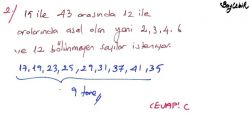 2) 15 ile 43 arasında 12 ile
aralarında asal olan yani 2, 3, 4, 6
ve 12 bölünmeyen sayılar isteniyor.
17, 19, 23, 25, 29, 31, 37, 41, 35
9 tane
CEVAP: C